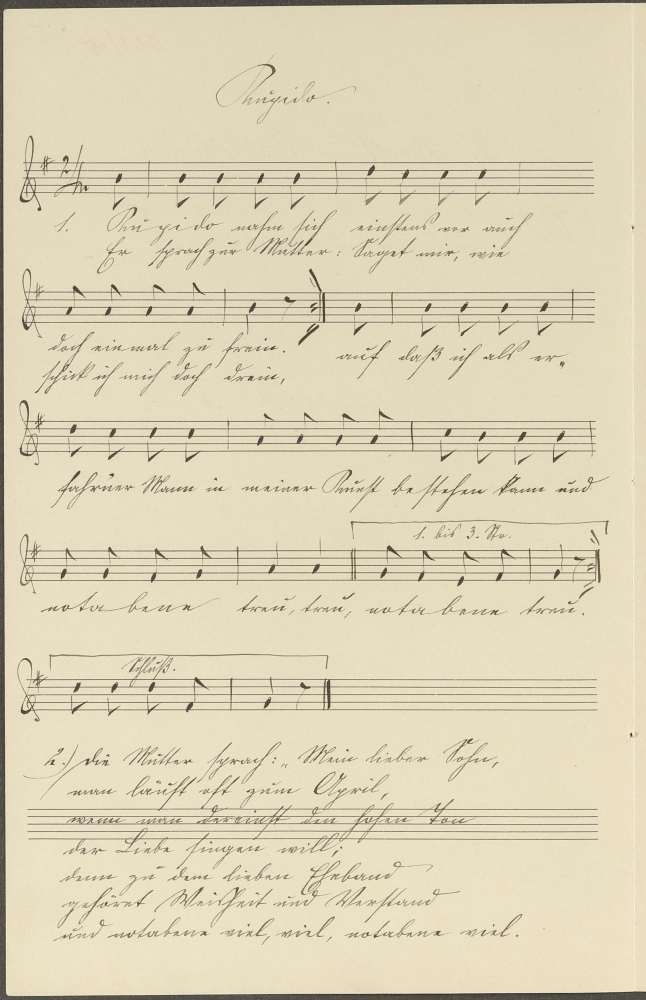 Kupido.
2/4
1. Kupido nahm sich einstens vor auch
Er sprach zur Mutter: Saget mir, wie
doch einmal zu frein. auf daß ich als er-
schick ich mich doch drein,
fahrner Mann in meiner Kunst bestehen kann und
1. bis 3. Str.
nota bene treu, treu, nota bene treu.
Schluß.
2.) Die Mutter sprach: „Mein lieber Sohn,
man läuft oft zum April,
wenn man dereinst den hohen Ton
der Liebe singen will;
denn zu dem lieben Eheband
gehöret Weisheit und Verstand
und notabene viel, viel, notabene viel.